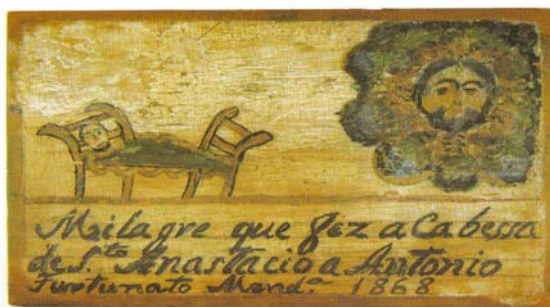 Milagre que fez a Cabessa
de S.to Anastacio a Antonio
Furtunato Mend.a 1868